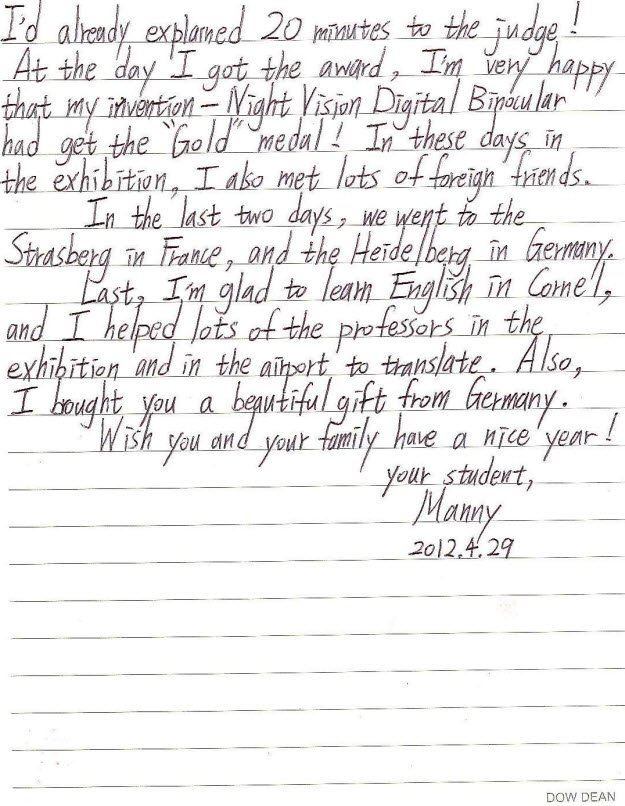 I'd already explained 20 minutes to the judge!
At the day I got the award, I'm very happy
that my invention – Night Vision Digital Binocular
had get the "Gold" medal! In these days in
the exhibition, I also met lots of foreign friends.
In the last two days, we went to the
Strasberg in France, and the Heidelberg in Germany.
Last, I'm glad to learn English in Cornel,
and I helped lots of the professors in the
exhibition and in the airport to translate. Also,
I bought you a beautiful gift from Germany.
Wish you and your family have a nice year!
your student,
Manny
2012.4.29
DOW DEAN